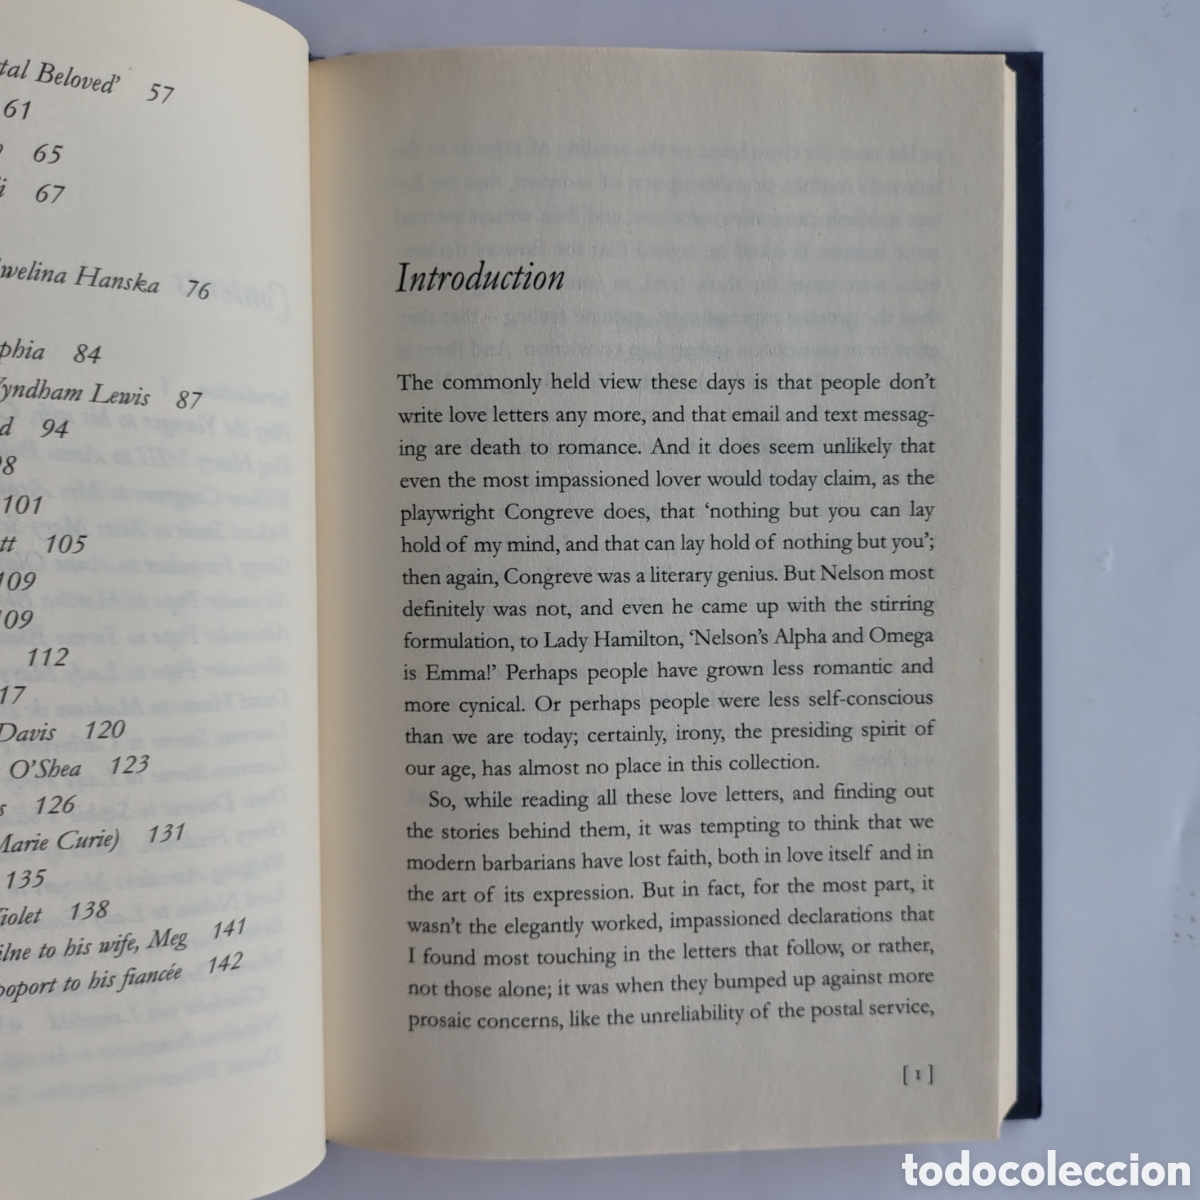 tal Beloved' 57
61
65
67
welina Hanska 76
phia 84
yndham Lewis 87
d 94
98
101
tt 105
109
109
112
17
Davis 120
O'Shea 123
s 126
Marie Curie) 131
135
Violet 138
ilne to his wife, Meg 141
poport to his fiancée 142
Introduction
The commonly held view these days is that people don't
write love letters any more, and that email and text messag-
ing are death to romance. And it does seem unlikely that
even the most impassioned lover would today claim, as the
playwright Congreve does, that 'nothing but you can lay
hold of my mind, and that can lay hold of nothing but you';
then again, Congreve was a literary genius. But Nelson most
definitely was not, and even he came up with the stirring
formulation, to Lady Hamilton, 'Nelson's Alpha and Omega
is Emma!' Perhaps people have grown less romantic and
more cynical. Or perhaps people were less self-conscious
than we are today; certainly, irony, the presiding spirit of
our age, has almost no place in this collection.
So, while reading all these love letters, and finding out
the stories behind them, it was tempting to think that we
modern barbarians have lost faith, both in love itself and in
the art of its expression. But in fact, for the most part, it
wasn't the elegantly worked, impassioned declarations that
I found most touching in the letters that follow, or rather,
not those alone; it was when they bumped up against more
prosaic concerns, like the unreliability of the postal service,
[ 1 ]
todocoleccion